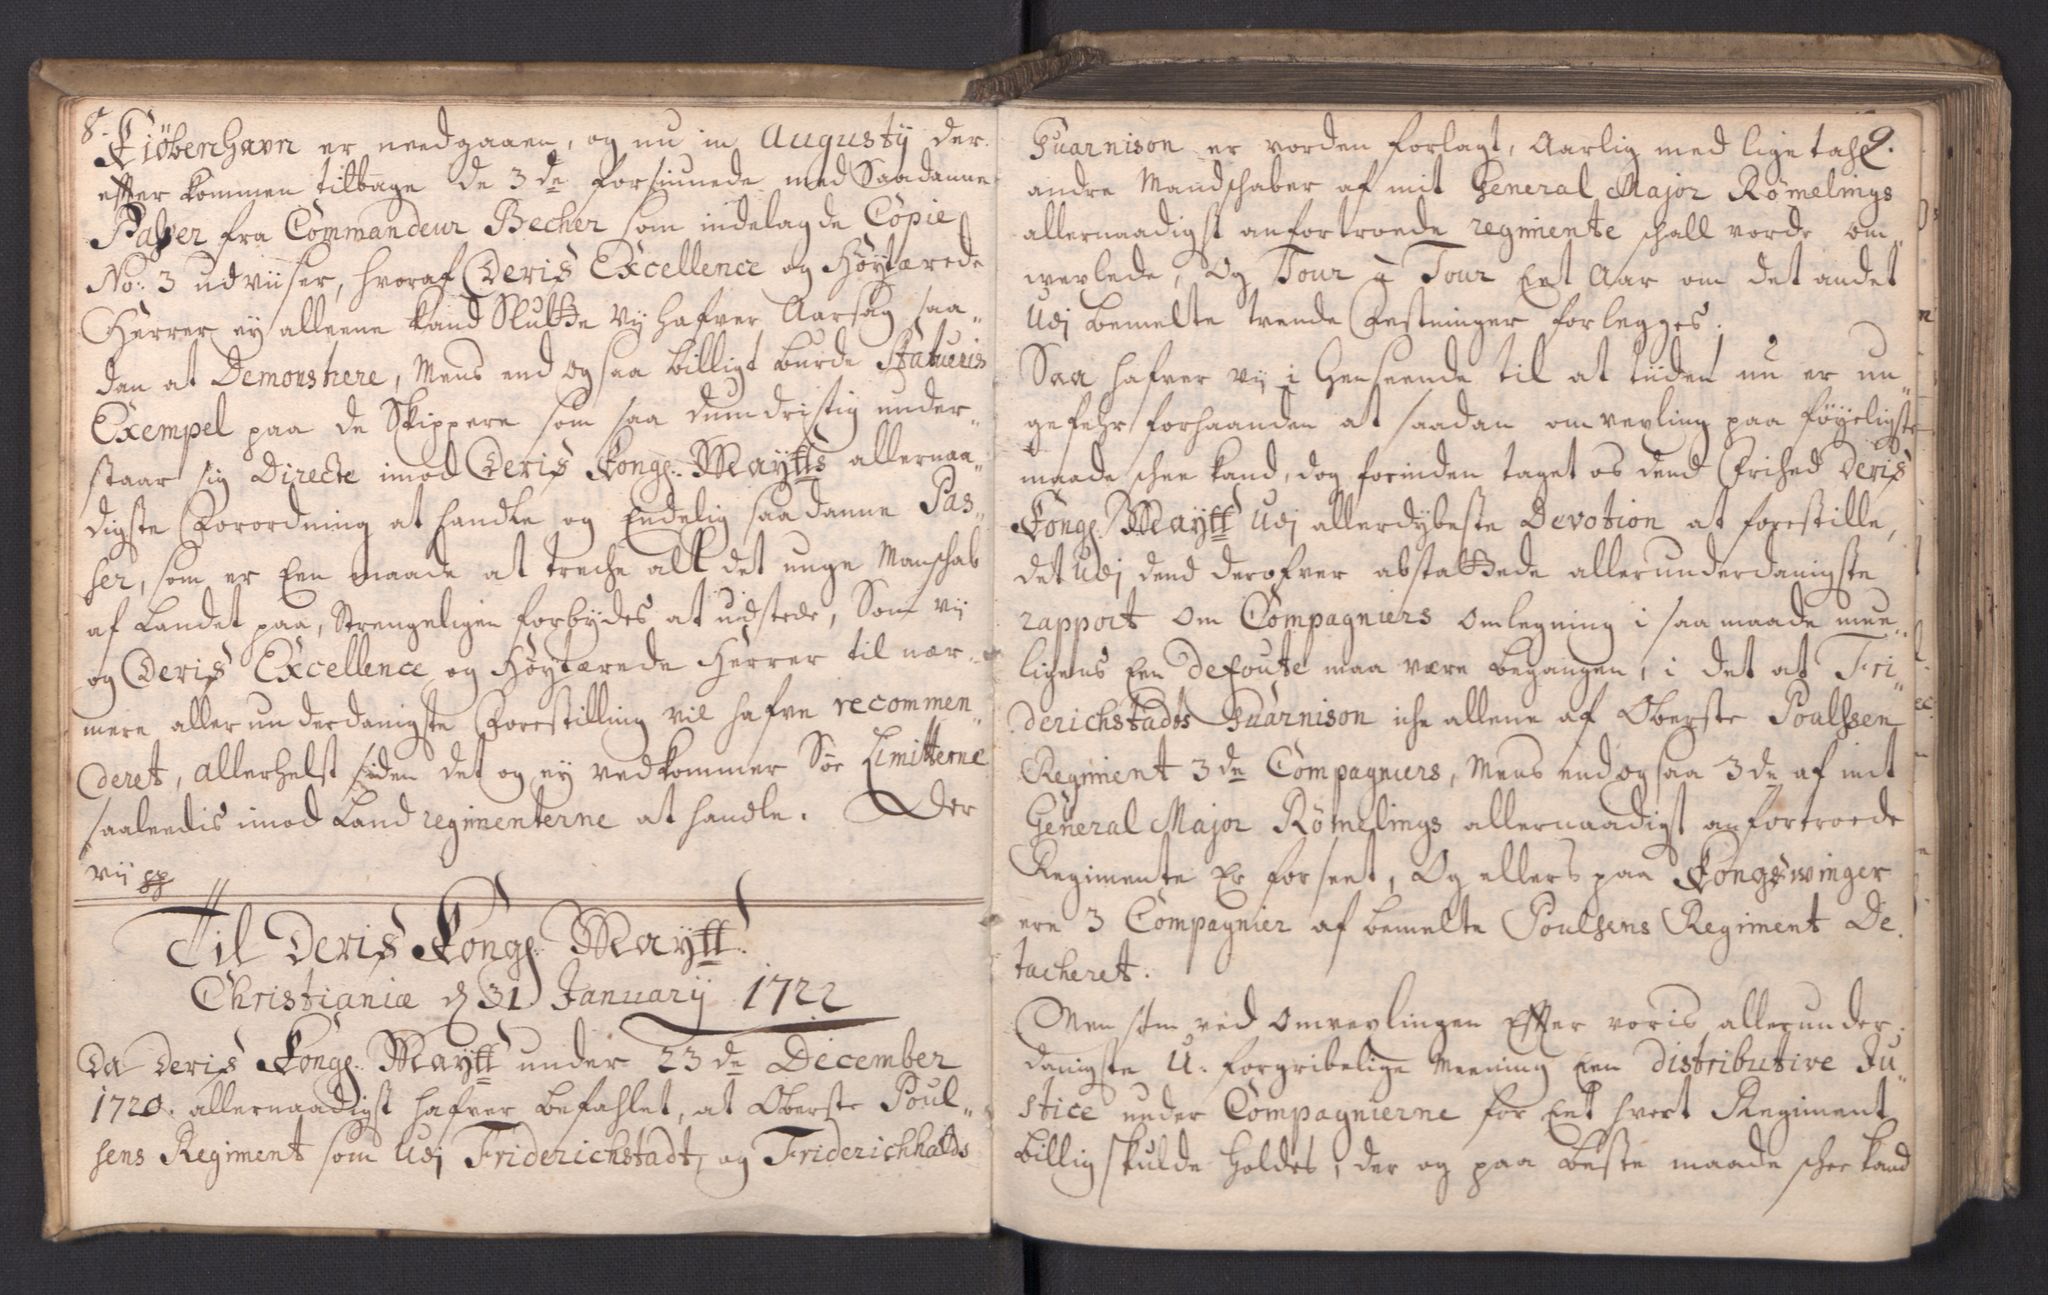 8.
Kiöbenhavn er needgaaen, og nu in Augusty der
effter kommen tilbage de 3de forsiunede med Saadanne
Passer fra Commandeur Becher som indelagde Copie
No: 3 udviiser, hvoraf Deris Excellence og Höytærede
Herrer ey alleene kand Slutte vy hafver Aarsag saa„
dan at Demonstrere, Mens end og saa billigt burde Statueris
Exempel paa de Skippere som saa dumdristig under„
staar sig Directe imod Deris Konge. Maytts allernaa„
digste Forordning at handle og Endelig saadanne Pas„
ser, som er Een maade at treche alt det unge Manschab
af Landet paa, Strengeligen forbydes at udstede, Som vij
og Deris Excellence og Höytærede Herrer til nær„
mere allerunderdanigste Forestilling vil hafve recommen„
deret, allerhelst siden det og ey vedkommer Söe Limitterne
saaleedis imod Land regimenterne at handle. Der
vij pp
Til Deris Konge. Maytt.
Christianiæ d 31 January 1722
Da Deris Konge. Maytt under 23de December
1720. allernaadigst hafver befahlet, at Oberste Poul„
sens Regiment som Udj Friderichstadt, og Friderichhalds
9.
Guarnison er vorden forlagt, Aarlig med lige tahl
andre Mandschaber af mit General Major Römelings
allernaadigst anfortroede regimente schall vorde om„
wexlede, Og Tour à Tour Eet Aar om det andet
Udj bemelte trende Festninger forlegges.
Saa hafver vij i Henseende til at tiiden nu er un„
gefehr forhaanden at saadan omvexling paa föyeligste
maade schee kand, dog forinden taget os dend Frihed Deris
Konge. Maytt Udj allerdybeste Devotion at forestille,
det Udj dend derofver abstattede allerunderdanigste
rapport om Compagniers omlegning i saa maade mue„
ligens Een defoute maa være begangen, i det at Fri„
derichstadts Guarnison iche allene af Oberste Poulssen
Regiment 3de Compagniers, Mens end og saa 3de af mit
General Major Römelings allernaadigst anfortroede
Regimente Er forseet, Og ellers paa Kongswinger
ere 3 Compagnier af bemelte Poulsens Regiment De„
tacheret.
Men som ved omvexlingen Effter voris allerunder„
danigste U-forgribelige Meening Een distributive Ju„
stice under Compagnierne for Eet hvert Regiment
billig skulde holdes, der og paa beste maade schee kand